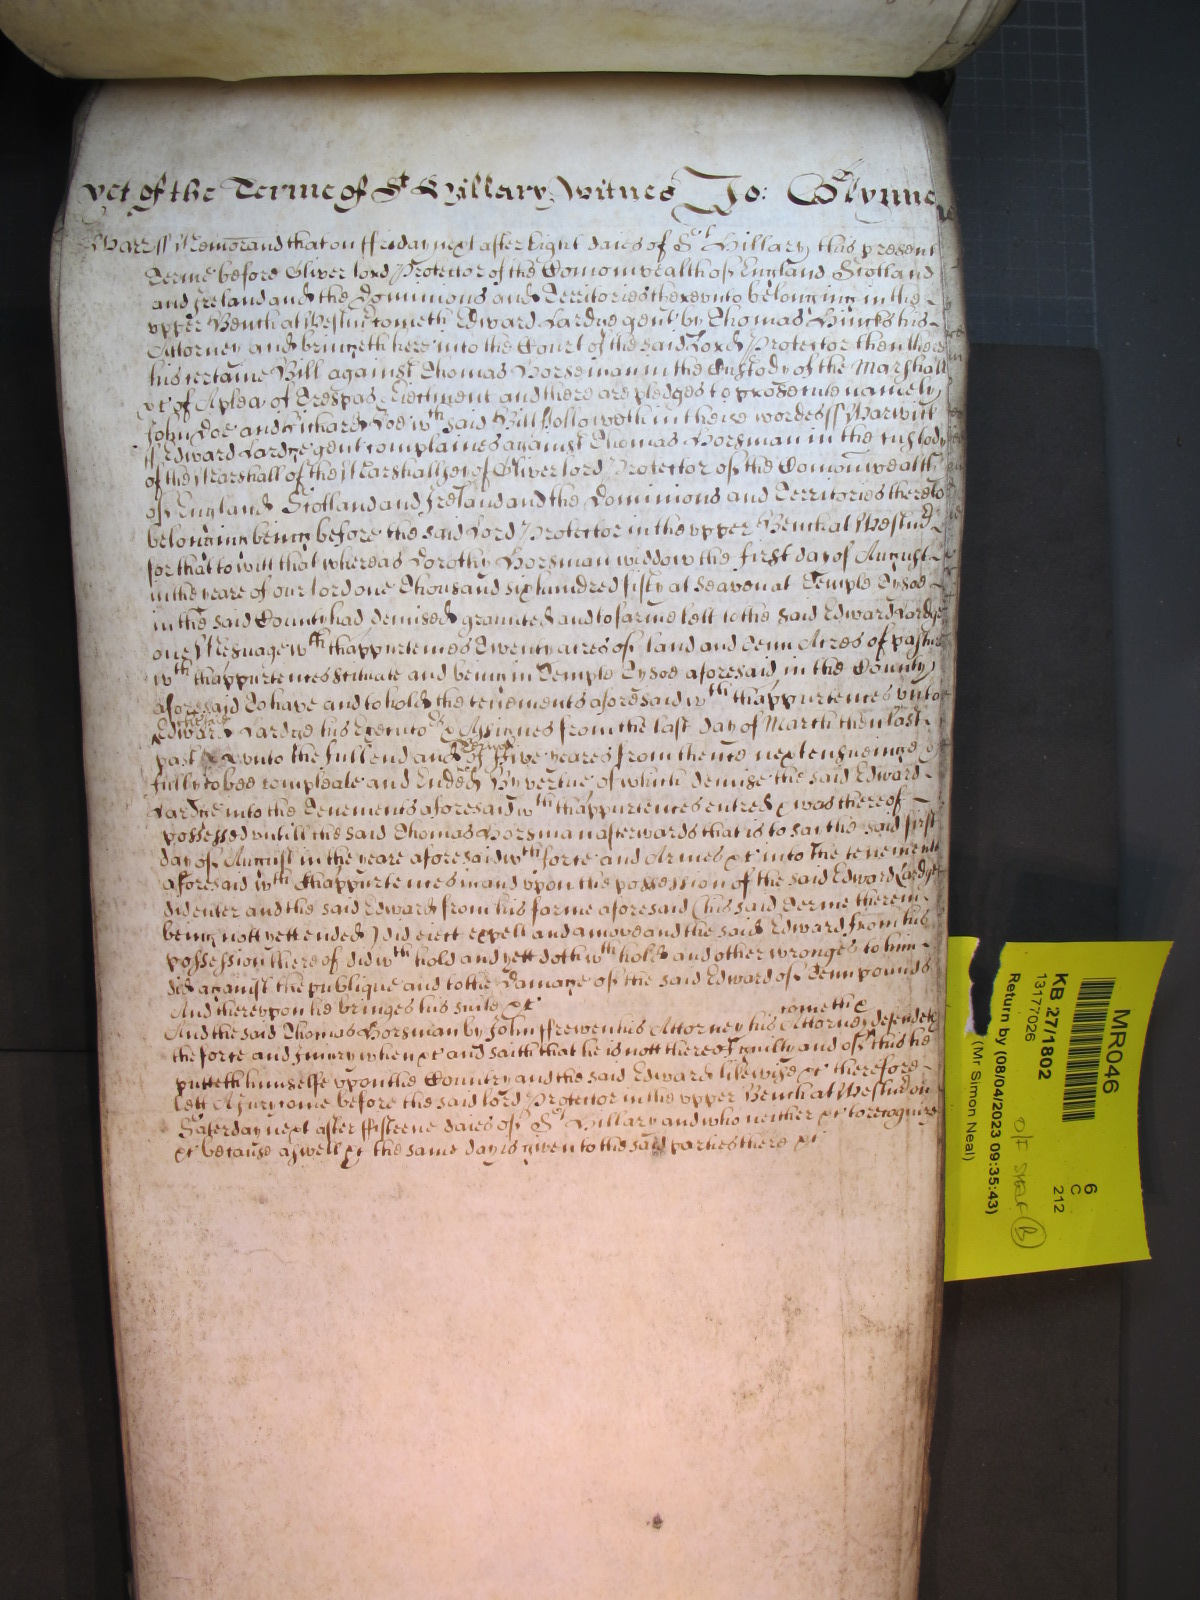 yet of the Terme of St Hillary Witnes Jo: Glynne
Warr ss Memorand that on ffriday next after Eight daies of St Hillary this present
Terme before Oliver lord Protector of the Comonwealth of England Scotland
and Ireland and the Dominions and Territories thereunto belonging in the
upper Bench at Westm cometh Edward Lardge gent by Thomas Hincks his
Attorney and bringeth here into the Court of the said Lord Protector then there
his certaine Bill against Thomas Horseman in the Custody of the Marshall
xc of A plea of Trespas & Eiectment and there are pledges to prosecute namely
John Doe and Richard Roe wth said Bill followeth in theis wordes ss Warwick
ss Edward Lardge gent complaines against Thomas Horsman in the custody
of the Marshall of the Marshallsey of Oliver lord Protector of the Comonwealth
of England Scotland and Ireland and the Dominions and Territories thereto
belonging being before the said Lord Protector in the upper Bench at Westm
for that to witt that whereas Dorothy Horsman widdow the first day of August
in the yeare of our lord one Thousand six hundred fifty at Seaven at Temple Tysoe
in the said County had demised graunted and to farme lett to the said Edward Lardge
one Messuage wth thappurtences Twenty acres of land and Tenn Acres of pasture
wth thappurtences scituate and being in Temple Tysoe aforesaid in the County
aforesaid To have and to hold the tenements aforesaid wth thappurtences unto
the said
Edward Lardge his Executors & Assignes from the last day of March then last
past & unto the full end and Terme of ffive yeares from thence next ensueinge &
fully to bee compleate and Ended By vertue of which demise the said Edward
Lardge into the Tenements aforesaid wth thappurtences entred & was thereof
possessed untill the said Thomas Horsman afterwards that is to say the said first
day of August in the yeare aforesaid wth force and Armes xc into the tenements
aforesaid wth Thappurtences in and upon the possession of the said Edward Lardge
did enter and the said Edward from his farme aforesaid (his said Terme therein
being nott yett ended) did eiect expell and amove and the said Edward from his
possession thereof did wth hold and yett doth wth hold and other wronges to him
did against the publique and to the Damage of the said Edward of Tenn pounds
And thereupon he bringes his suite xc
cometh &
And the said Thomas Horsman by John ffrewen his Attorney his Attorney defendeth
the force and Iniury when xc and saith that he is nott thereof guilty and of this he
putteth himselfe upon the Country and the said Edward likewise xc therefore
lett A Jury come before the said lord Protector in the upper Bench at Westm on
Saterday next after ffifteene daies of St Hillary and who neither xc to recognize
xc because aswell xc the same day is given to the said parties there xc
MR046
KB 27/1802
13177026
Return by (08/04/2023 09:35:43)
(Mr Simon Neal)
6
C
212
O/F SHELF (B)